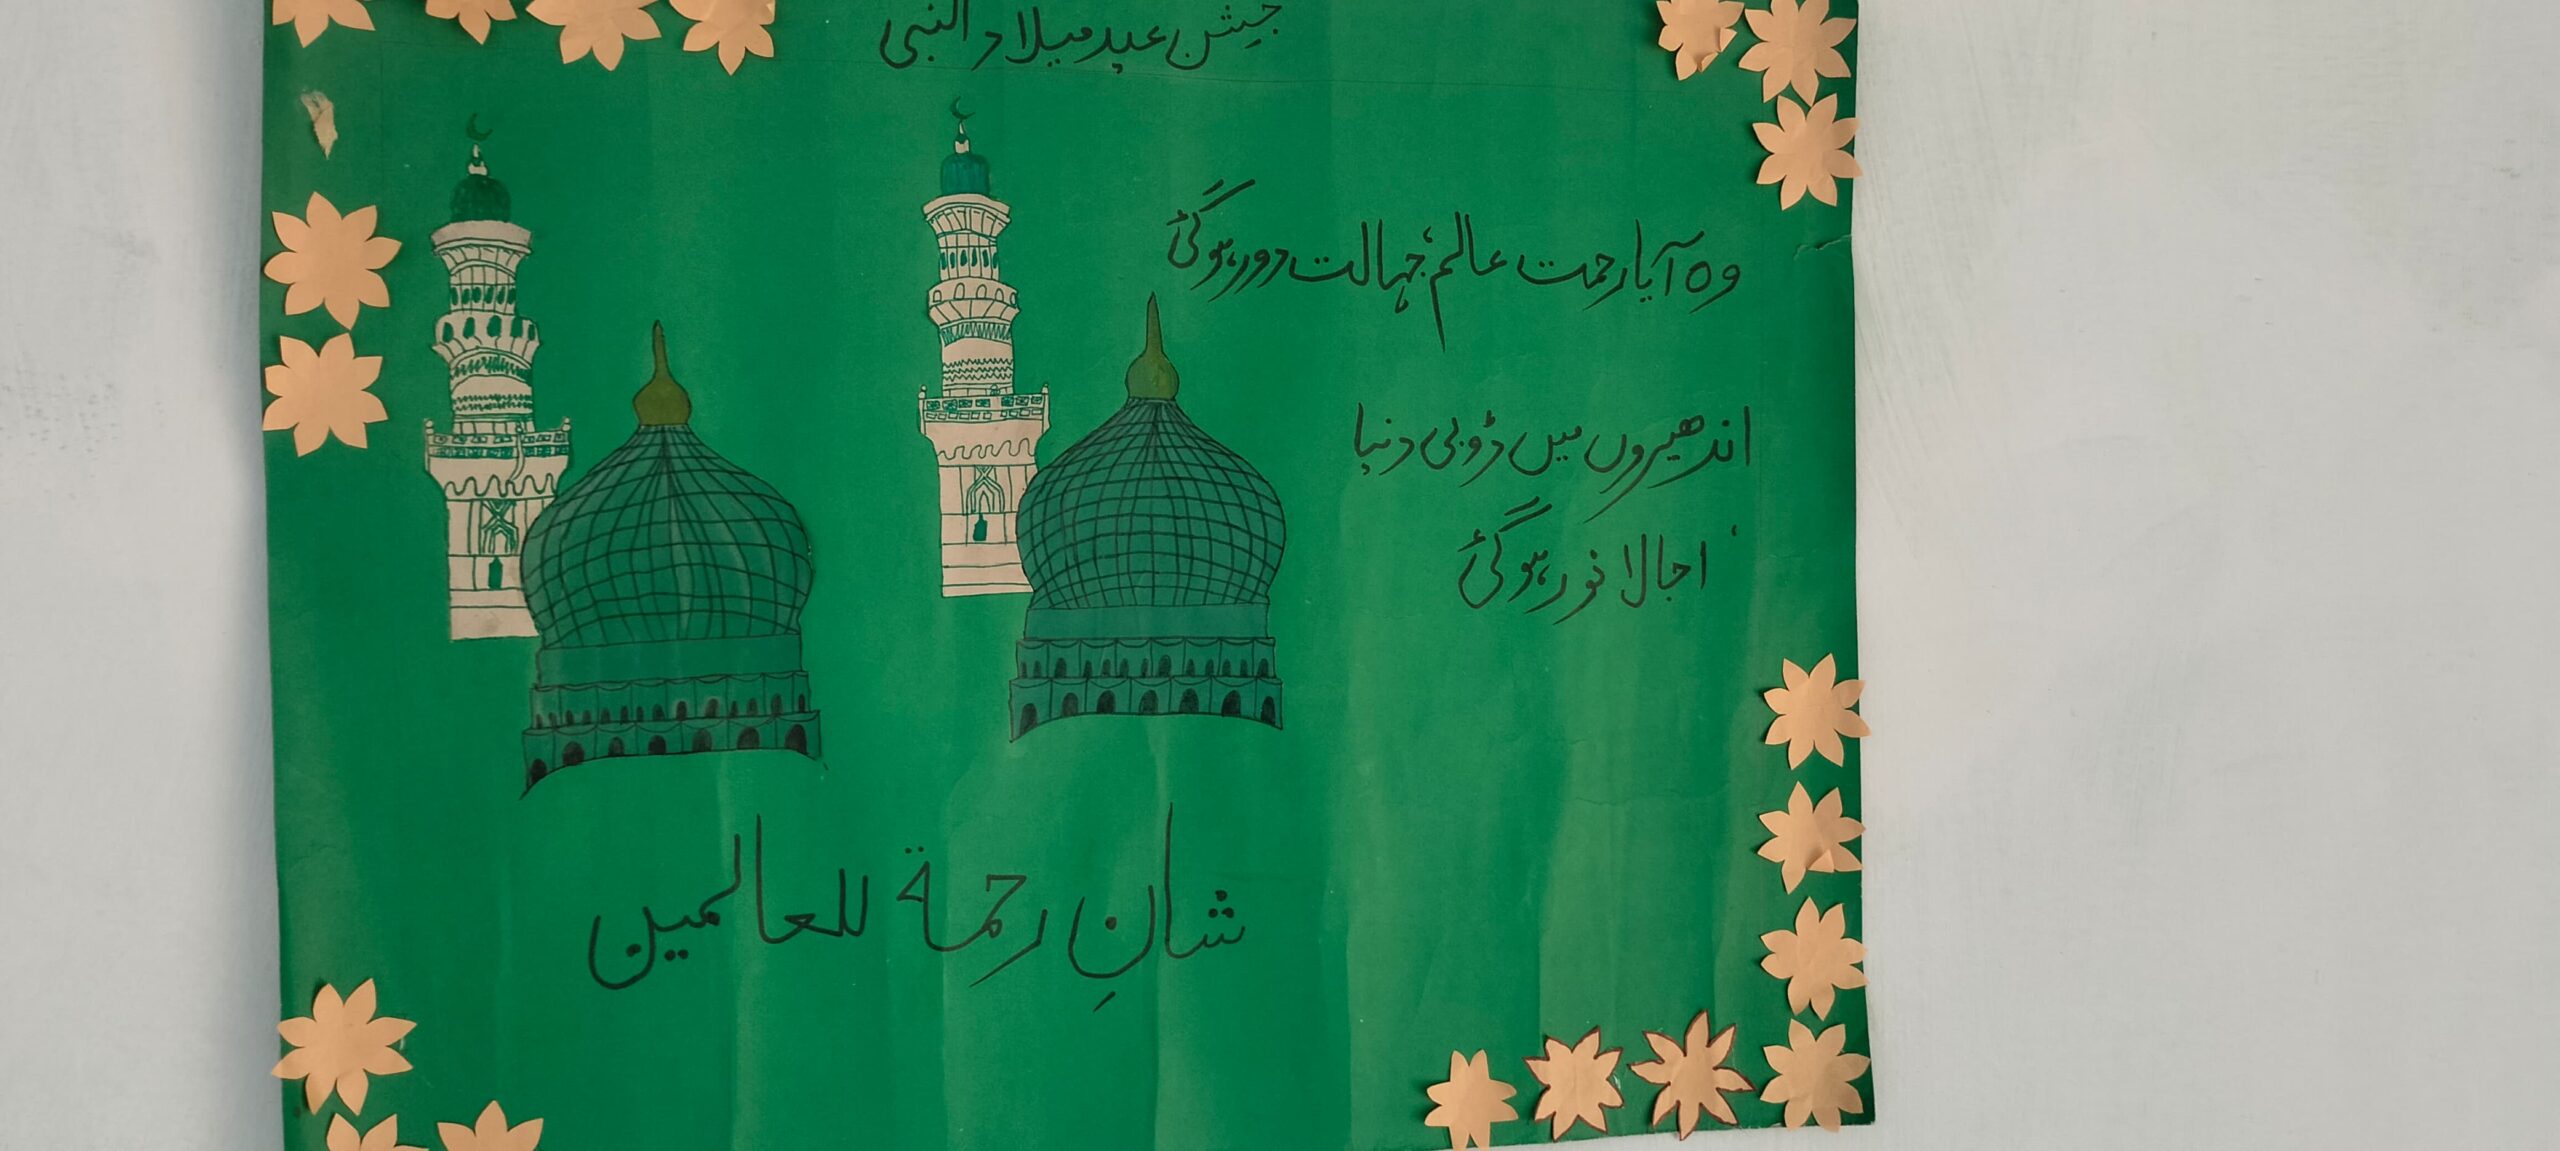 جشن عید میلاد النبی
وہ آیا رحمت عالم، جہالت دور ہوگئ
اندھیروں میں ڈوبی دنیا
اجالا نور ہوگئ
شانِ رحمة للعالمین